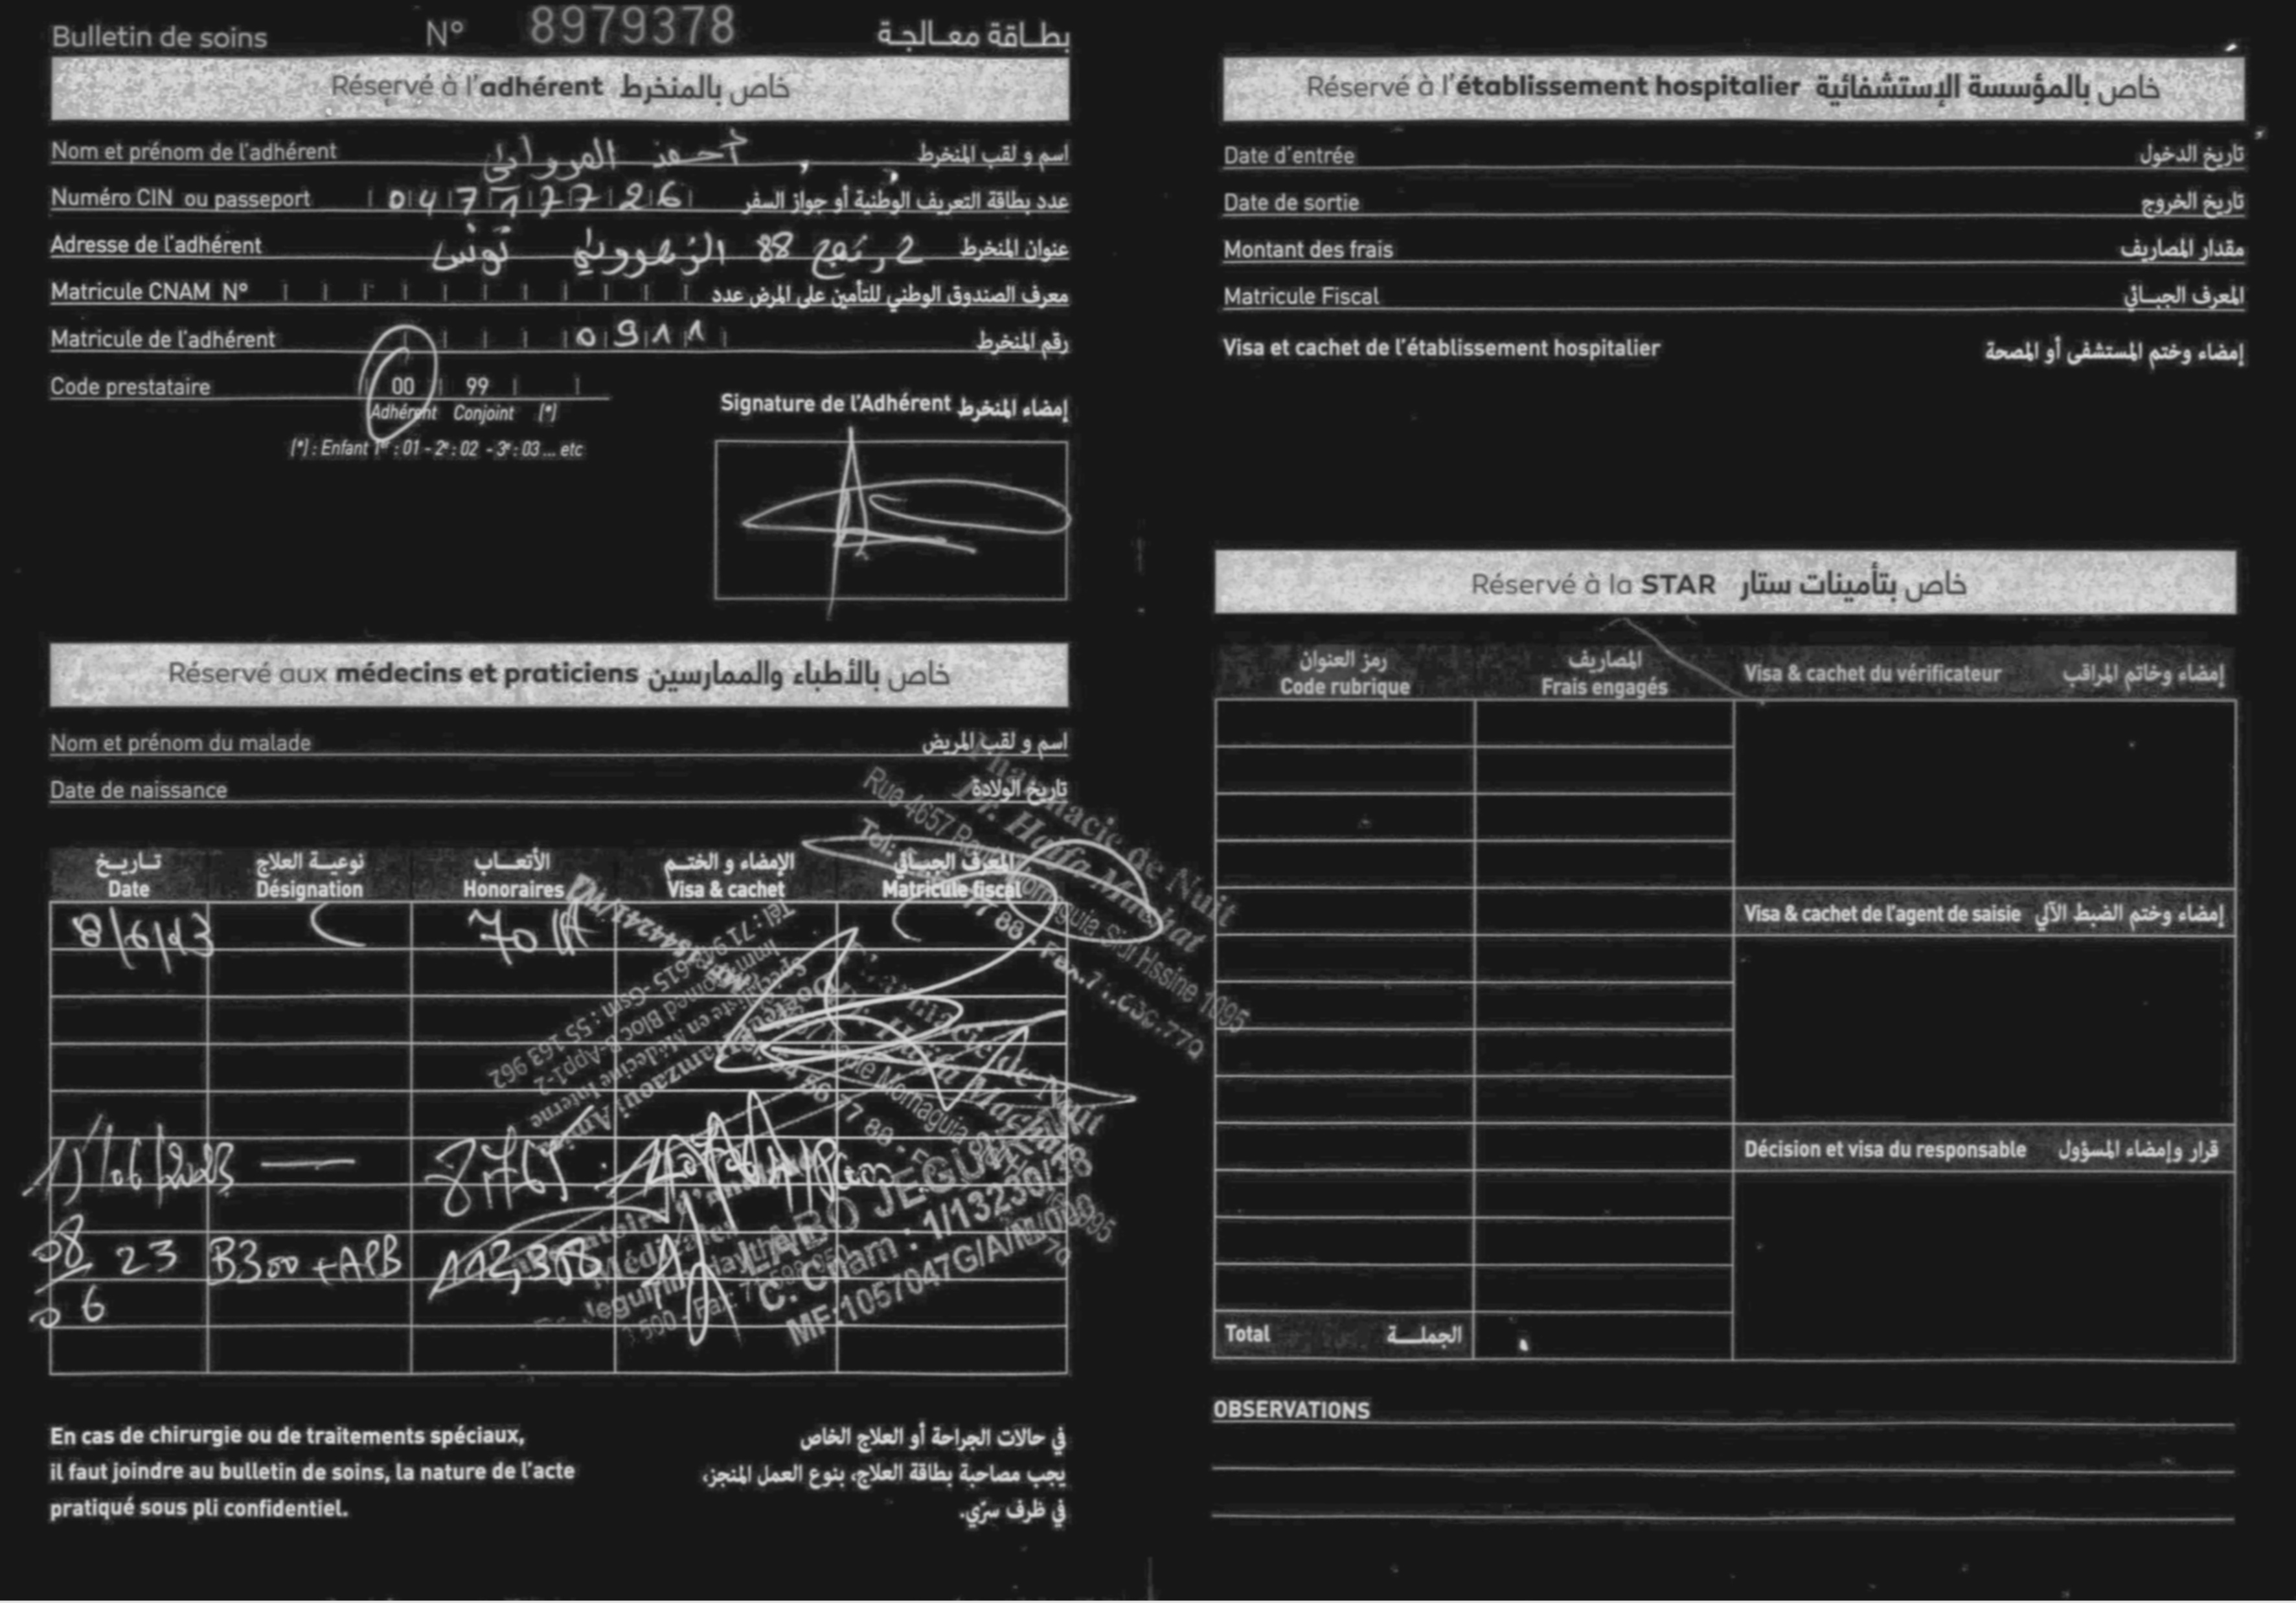 Bulletin de soins N° 8979378 بطاقة معالجة
Réservé à l'adhérent خاص بالمنخرط
Nom et prénom de l'adhérent أحمد المرواني اسم و لقب المنخرط
Numéro CIN ou passeport 04717726 عدد بطاقة التعريف الوطنية أو جواز السفر
Adresse de l'adhérent 2 نهج 88 تونس عنوان المنخرط
Matricule CNAM N° معرف الصندوق الوطني للتأمين على المرض عدد
Matricule de l'adhérent 0911 رقم المنخرط
Code prestataire 00 99
Adhérent Conjoint (*)
(*) : Enfant 1er : 01 - 2e : 02 - 3e : 03 ... etc
Signature de l'Adhérent إمضاء المنخرط
Réservé aux médecins et praticiens خاص بالأطباء والممارسين
Nom et prénom du malade اسم و لقب المريض
Date de naissance تاريخ الولادة
تاريخ نوعية العلاج الأتعاب الإمضاء و الختم المعرف الجبائي
Date Désignation Honoraires Visa & cachet Matricule fiscal
8/6/23 C 70
Pharmacie de Nuit
Pr. Haifa Machat
Rue 4657 Mornaguia Sidi Hssine 1095
Tél : 71 948 615 - Gsm : 55 163 962
Immi Bloc B-App1-2
Spécialiste en Médecine Interne
Docteur Hamzaoui
Pharmacie de Nuit
Haifa Machat
Mornaguia
08/06 23 B300 + APB 112,308
LABO JEGUIRIM
C. Cnam : 1/13230/38
MF:1057047G/A/M/000
En cas de chirurgie ou de traitements spéciaux,
il faut joindre au bulletin de soins, la nature de l'acte
pratiqué sous pli confidentiel.
في حالات الجراحة أو العلاج الخاص
يجب مصاحبة بطاقة العلاج، بنوع العمل المنجز،
في ظرف سرّي.
Réservé à l'établissement hospitalier خاص بالمؤسسة الإستشفائية
Date d'entrée تاريخ الدخول
Date de sortie تاريخ الخروج
Montant des frais مقدار المصاريف
Matricule Fiscal المعرف الجبائي
Visa et cachet de l'établissement hospitalier إمضاء وختم المستشفى أو المصحة
Réservé à la STAR خاص بتأمينات ستار
رمز العنوان المصاريف
Code rubrique Frais engagés Visa & cachet du vérificateur إمضاء وخاتم المراقب
Visa & cachet de l'agent de saisie إمضاء وختم الضبط الآلي
Décision et visa du responsable قرار وإمضاء المسؤول
Total الجملة
OBSERVATIONS